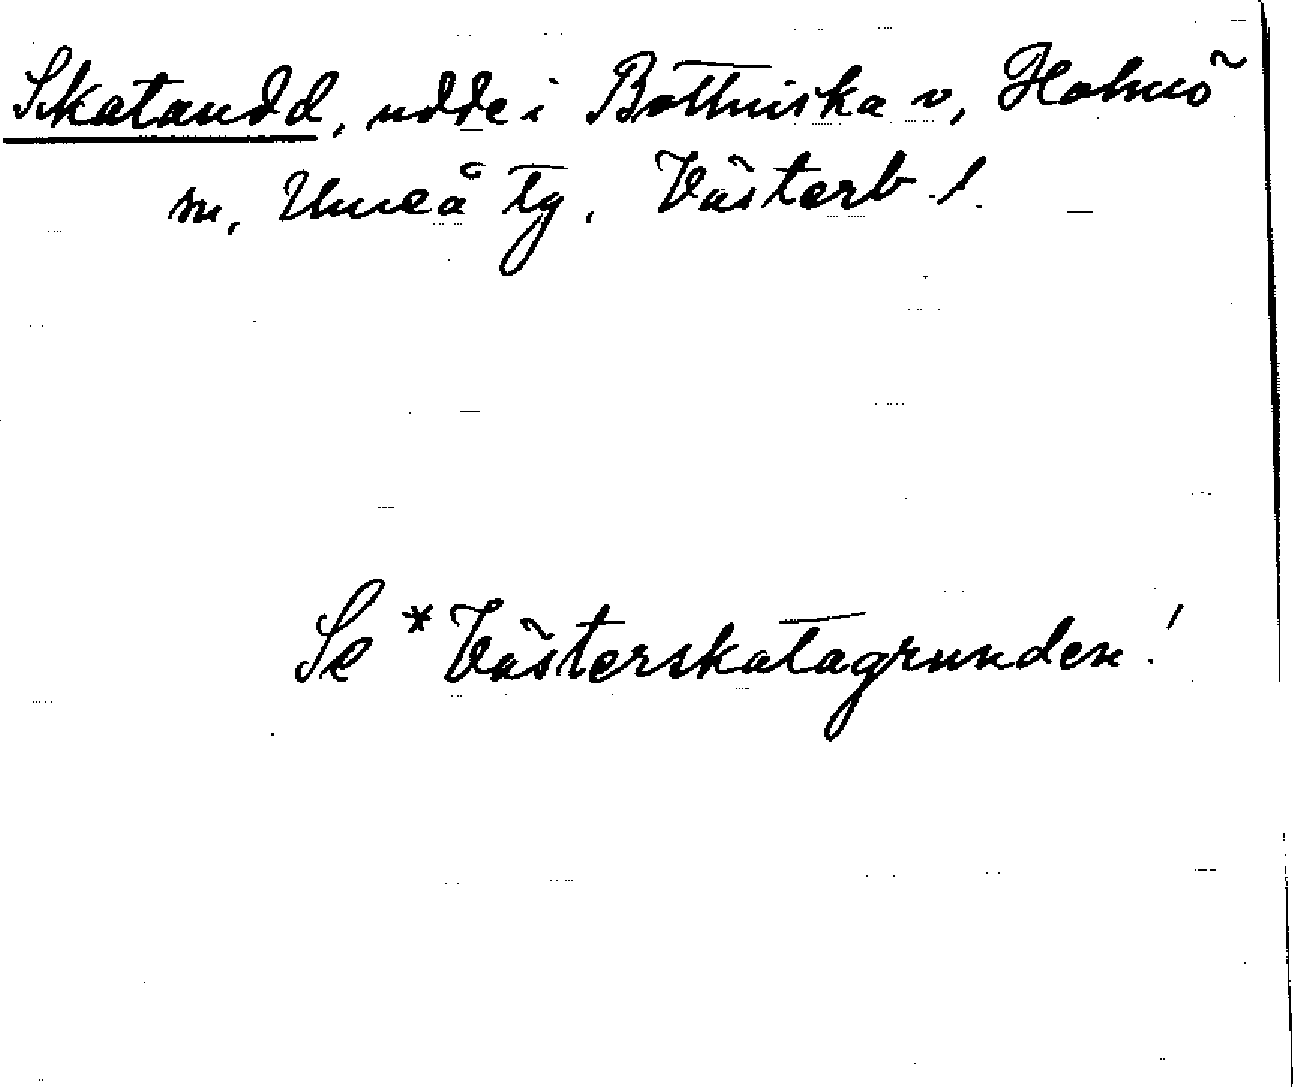 Skatandd, udde i Bottniska v, Holmö
sn, Umeå tg, Västerb. l.
Se *Västerskatagrunden!